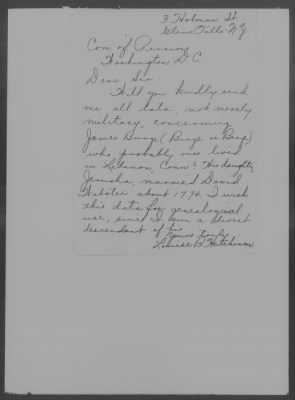 3 Holman St
Glens Falls N.Y.
Com of Pensions
Washington, D.C.
Dear Sir:
Will you kindly send
me all data, not merely
military, concerning
James Binge (Binge or Bing)
who probably once lived
in Lebanon, Conn? His daughter,
Jerusha, married David
Webster about 1774. I wish
this data for genealogical
use, since I am a direct
descendant of his
Yours truly,
Louise B. Hutchinson